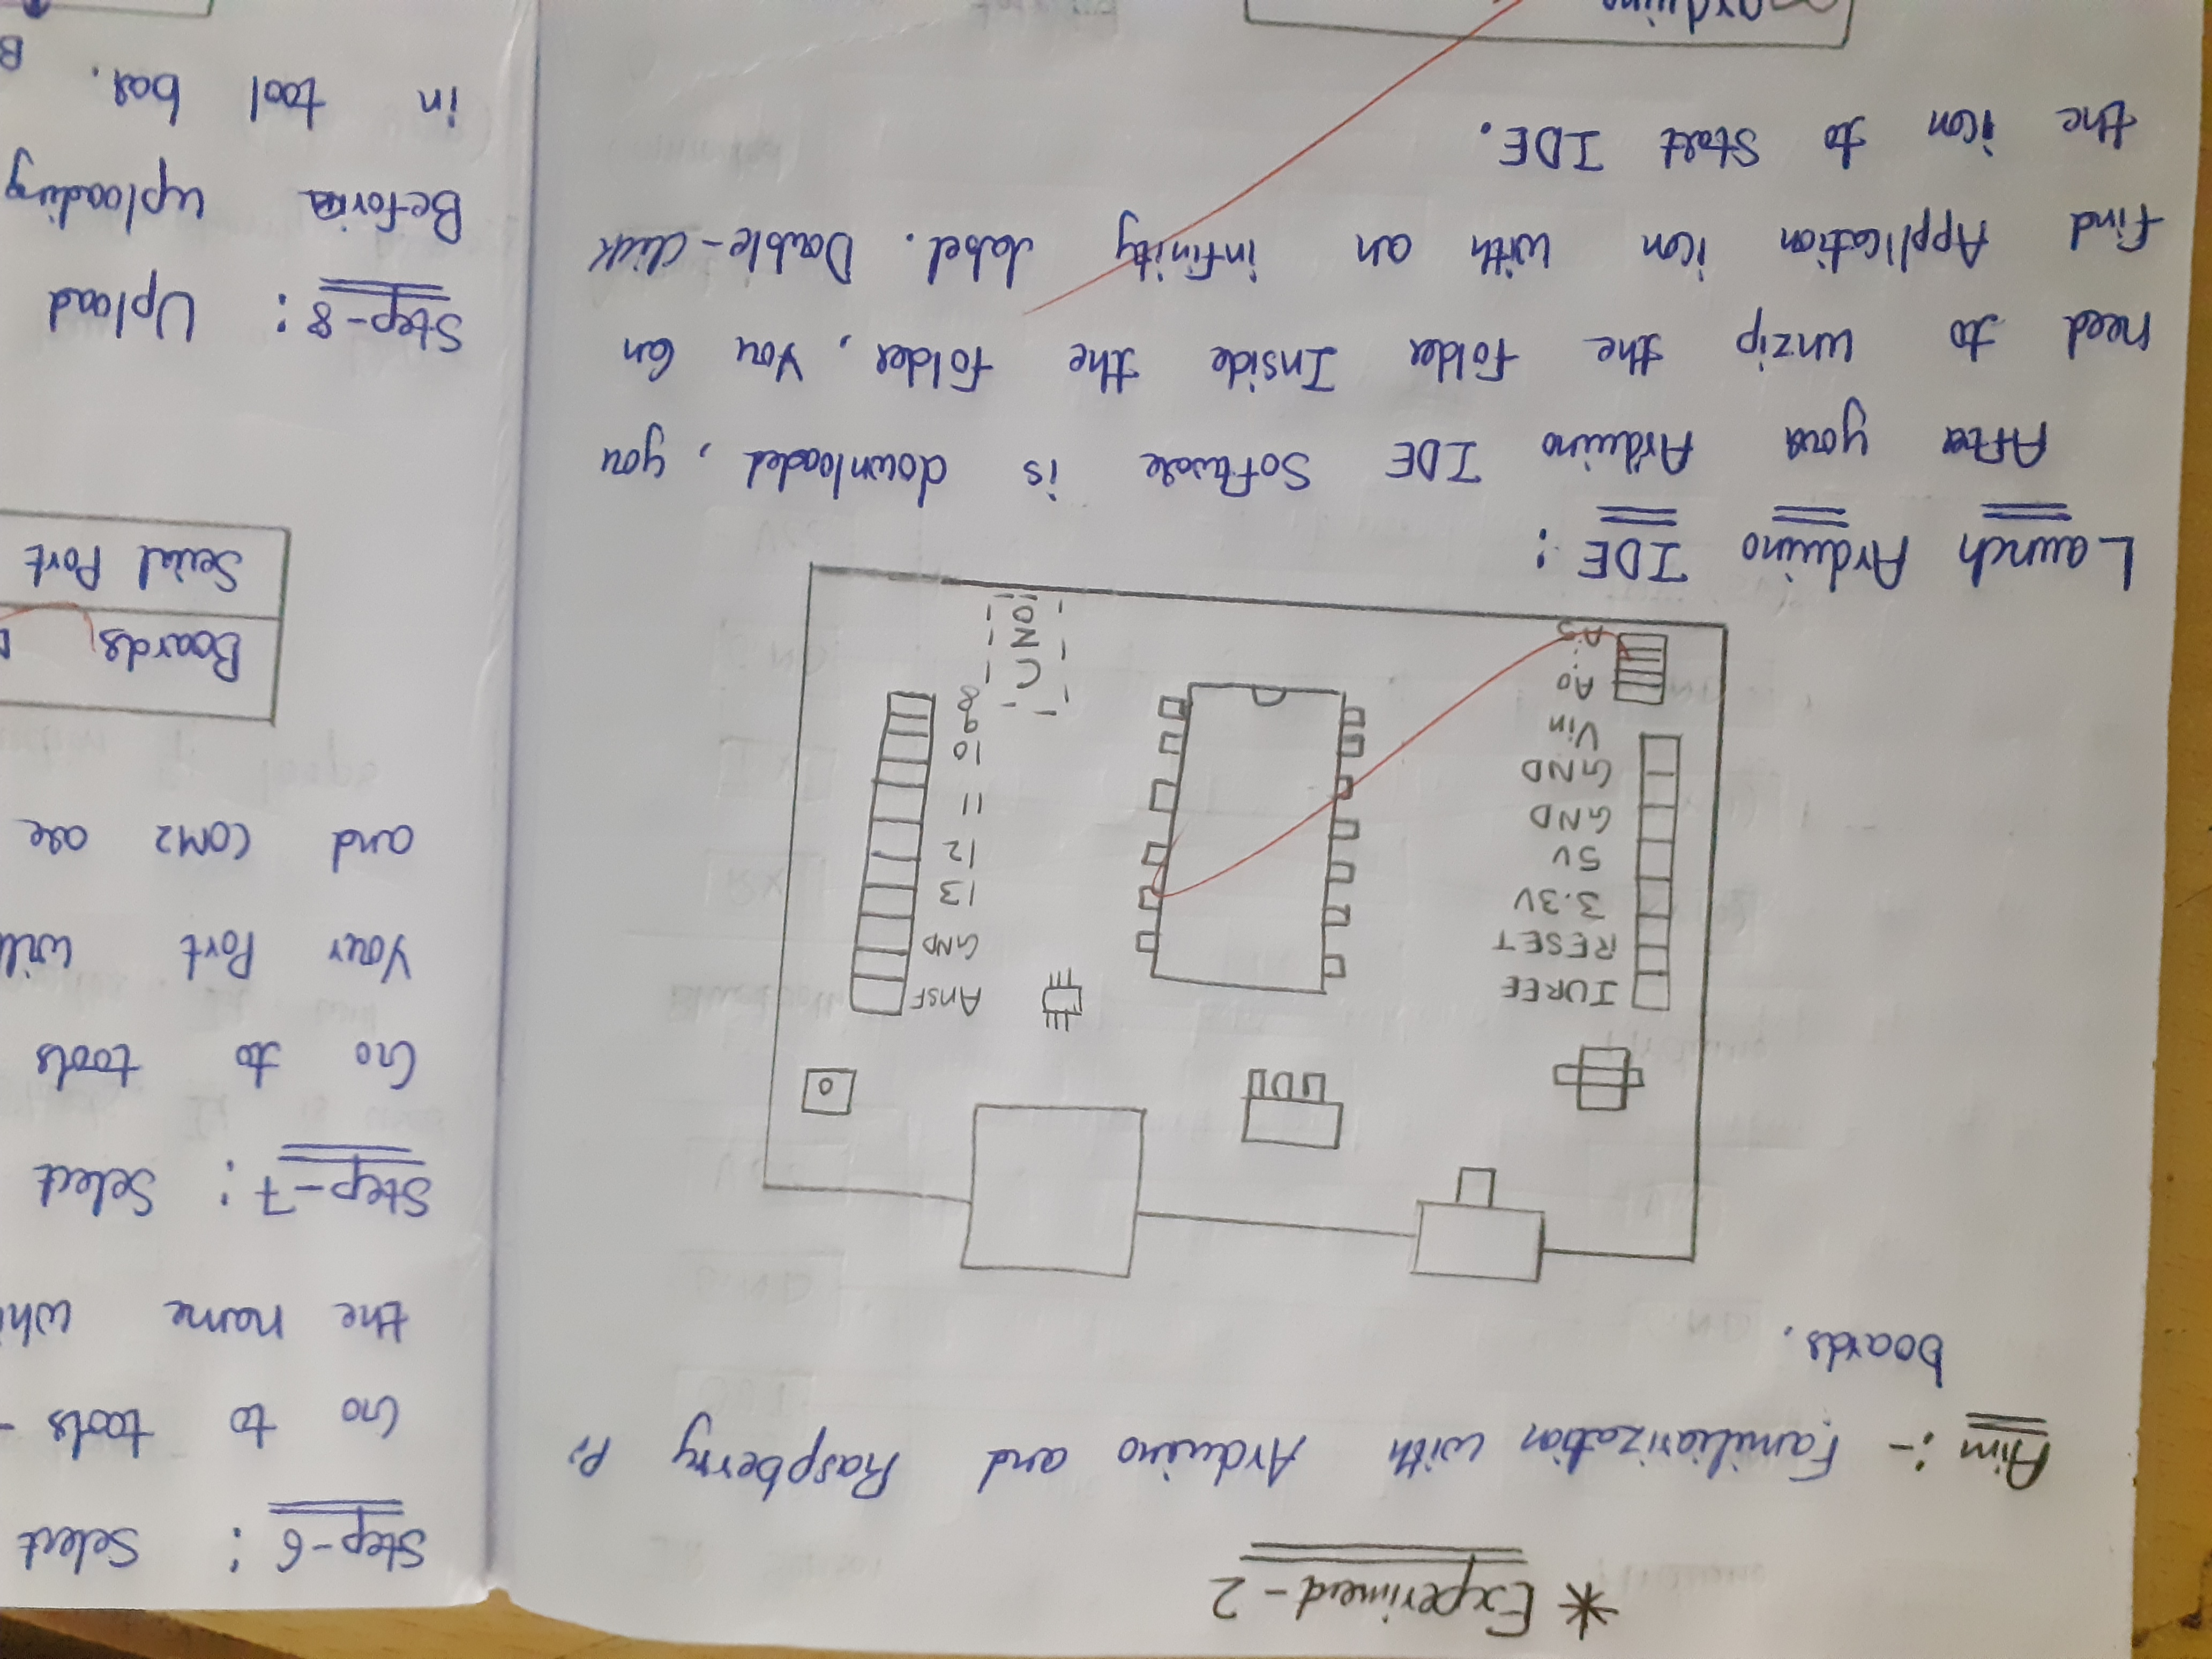 * Experiment-2
Aim :- Familiarization with Arduino and Raspberry Pi
boards.
IOREF
RESET
3.3V
5V
GND
GND
Vin
A0
A5
AREF
GND
13
12
11
10
9
8
Launch Arduino IDE :
After your Arduino IDE Software is downloaded, you
need to unzip the folder Inside the folder, you can
find Application icon with an infinity label. Double-click
the icon to Start IDE.
Arduino
Step-6 : Select
Go to tools -
the name whi
Step-7 : Select
Go to tools
Your Port will
and com2 are
Boards
Serial Port
Step-8 : Upload
Before uploading
in tool bar.
B